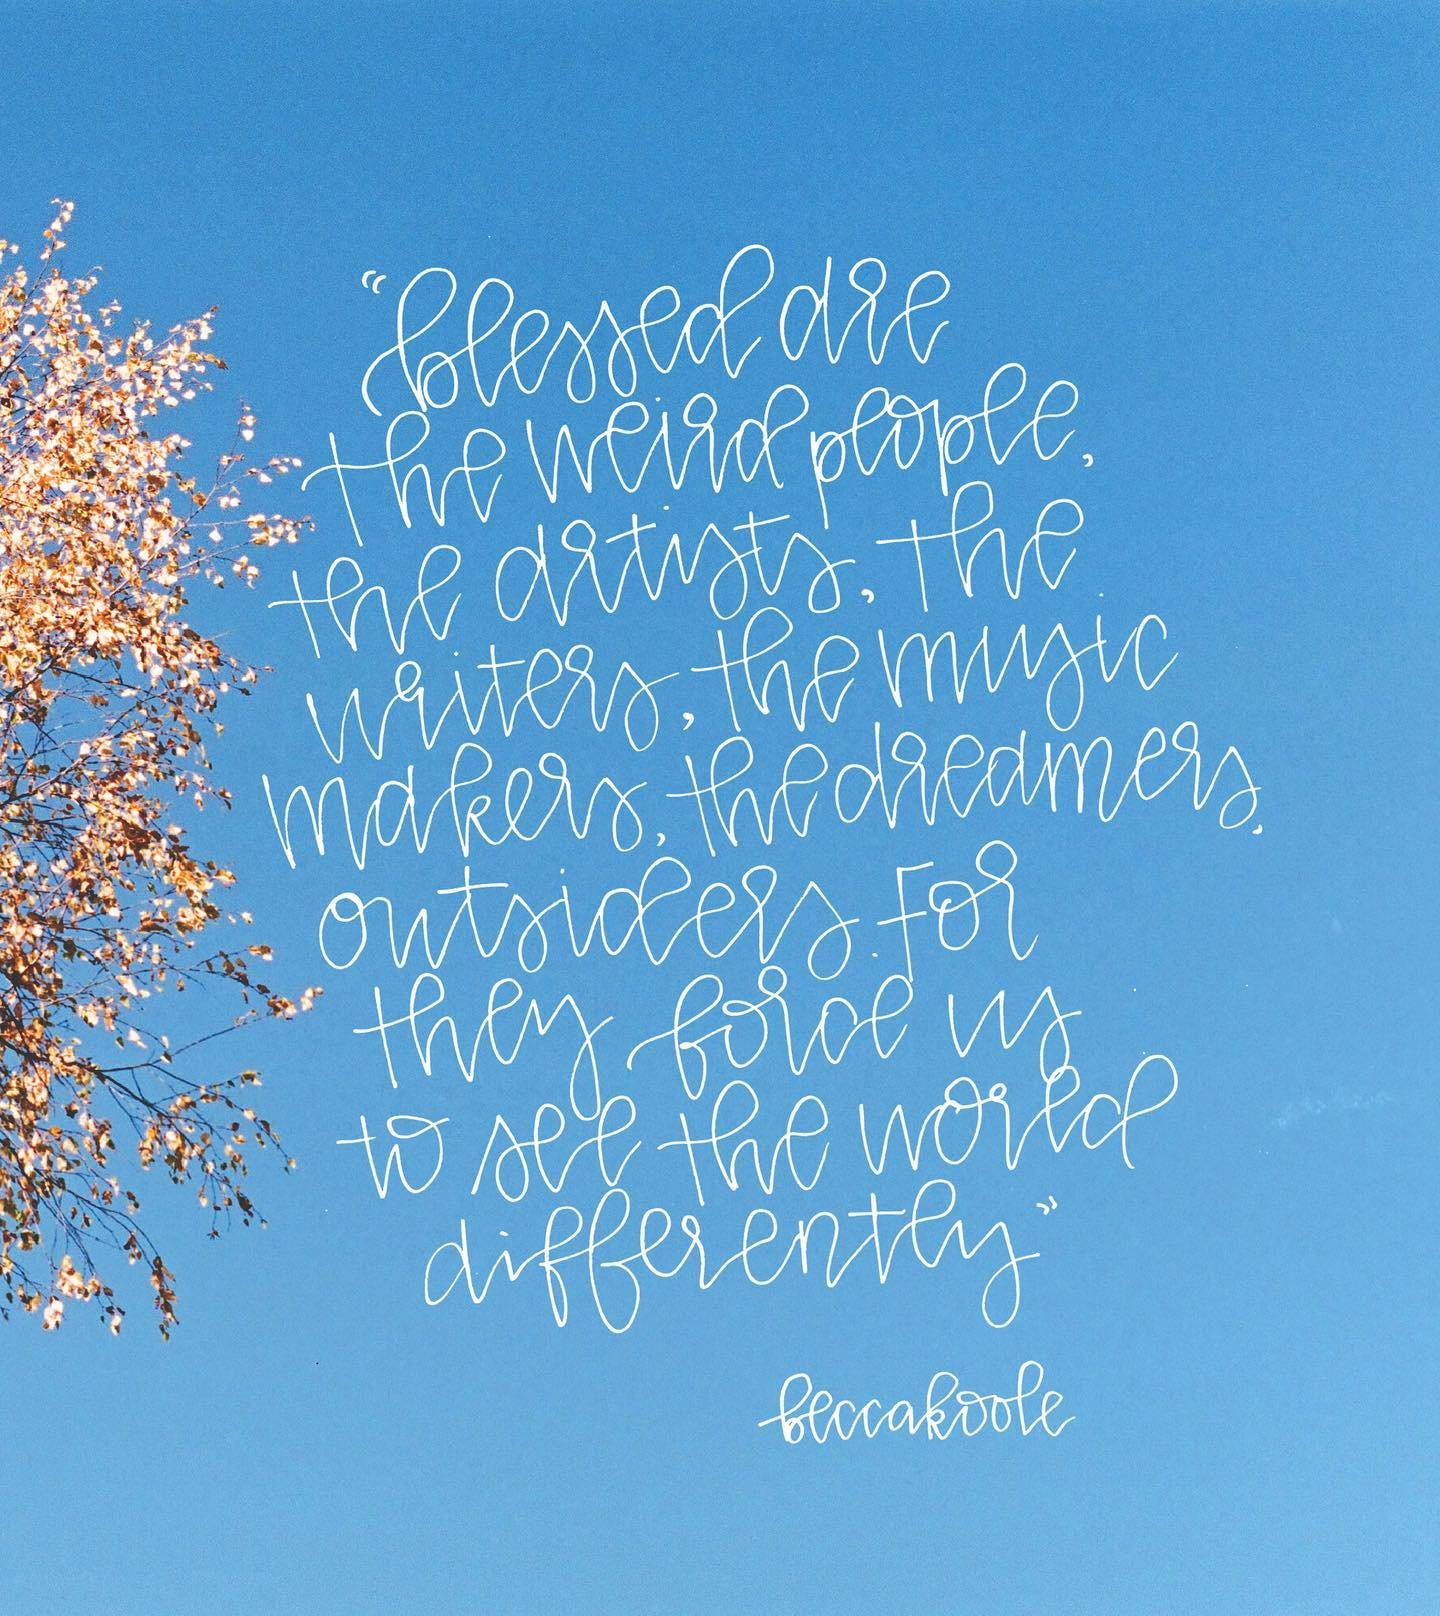 "blessed are
the weird people,
the artists, the
writers, the music
makers, the dreamers,
outsiders. For
they force us
to see the world
differently"
beccakoole